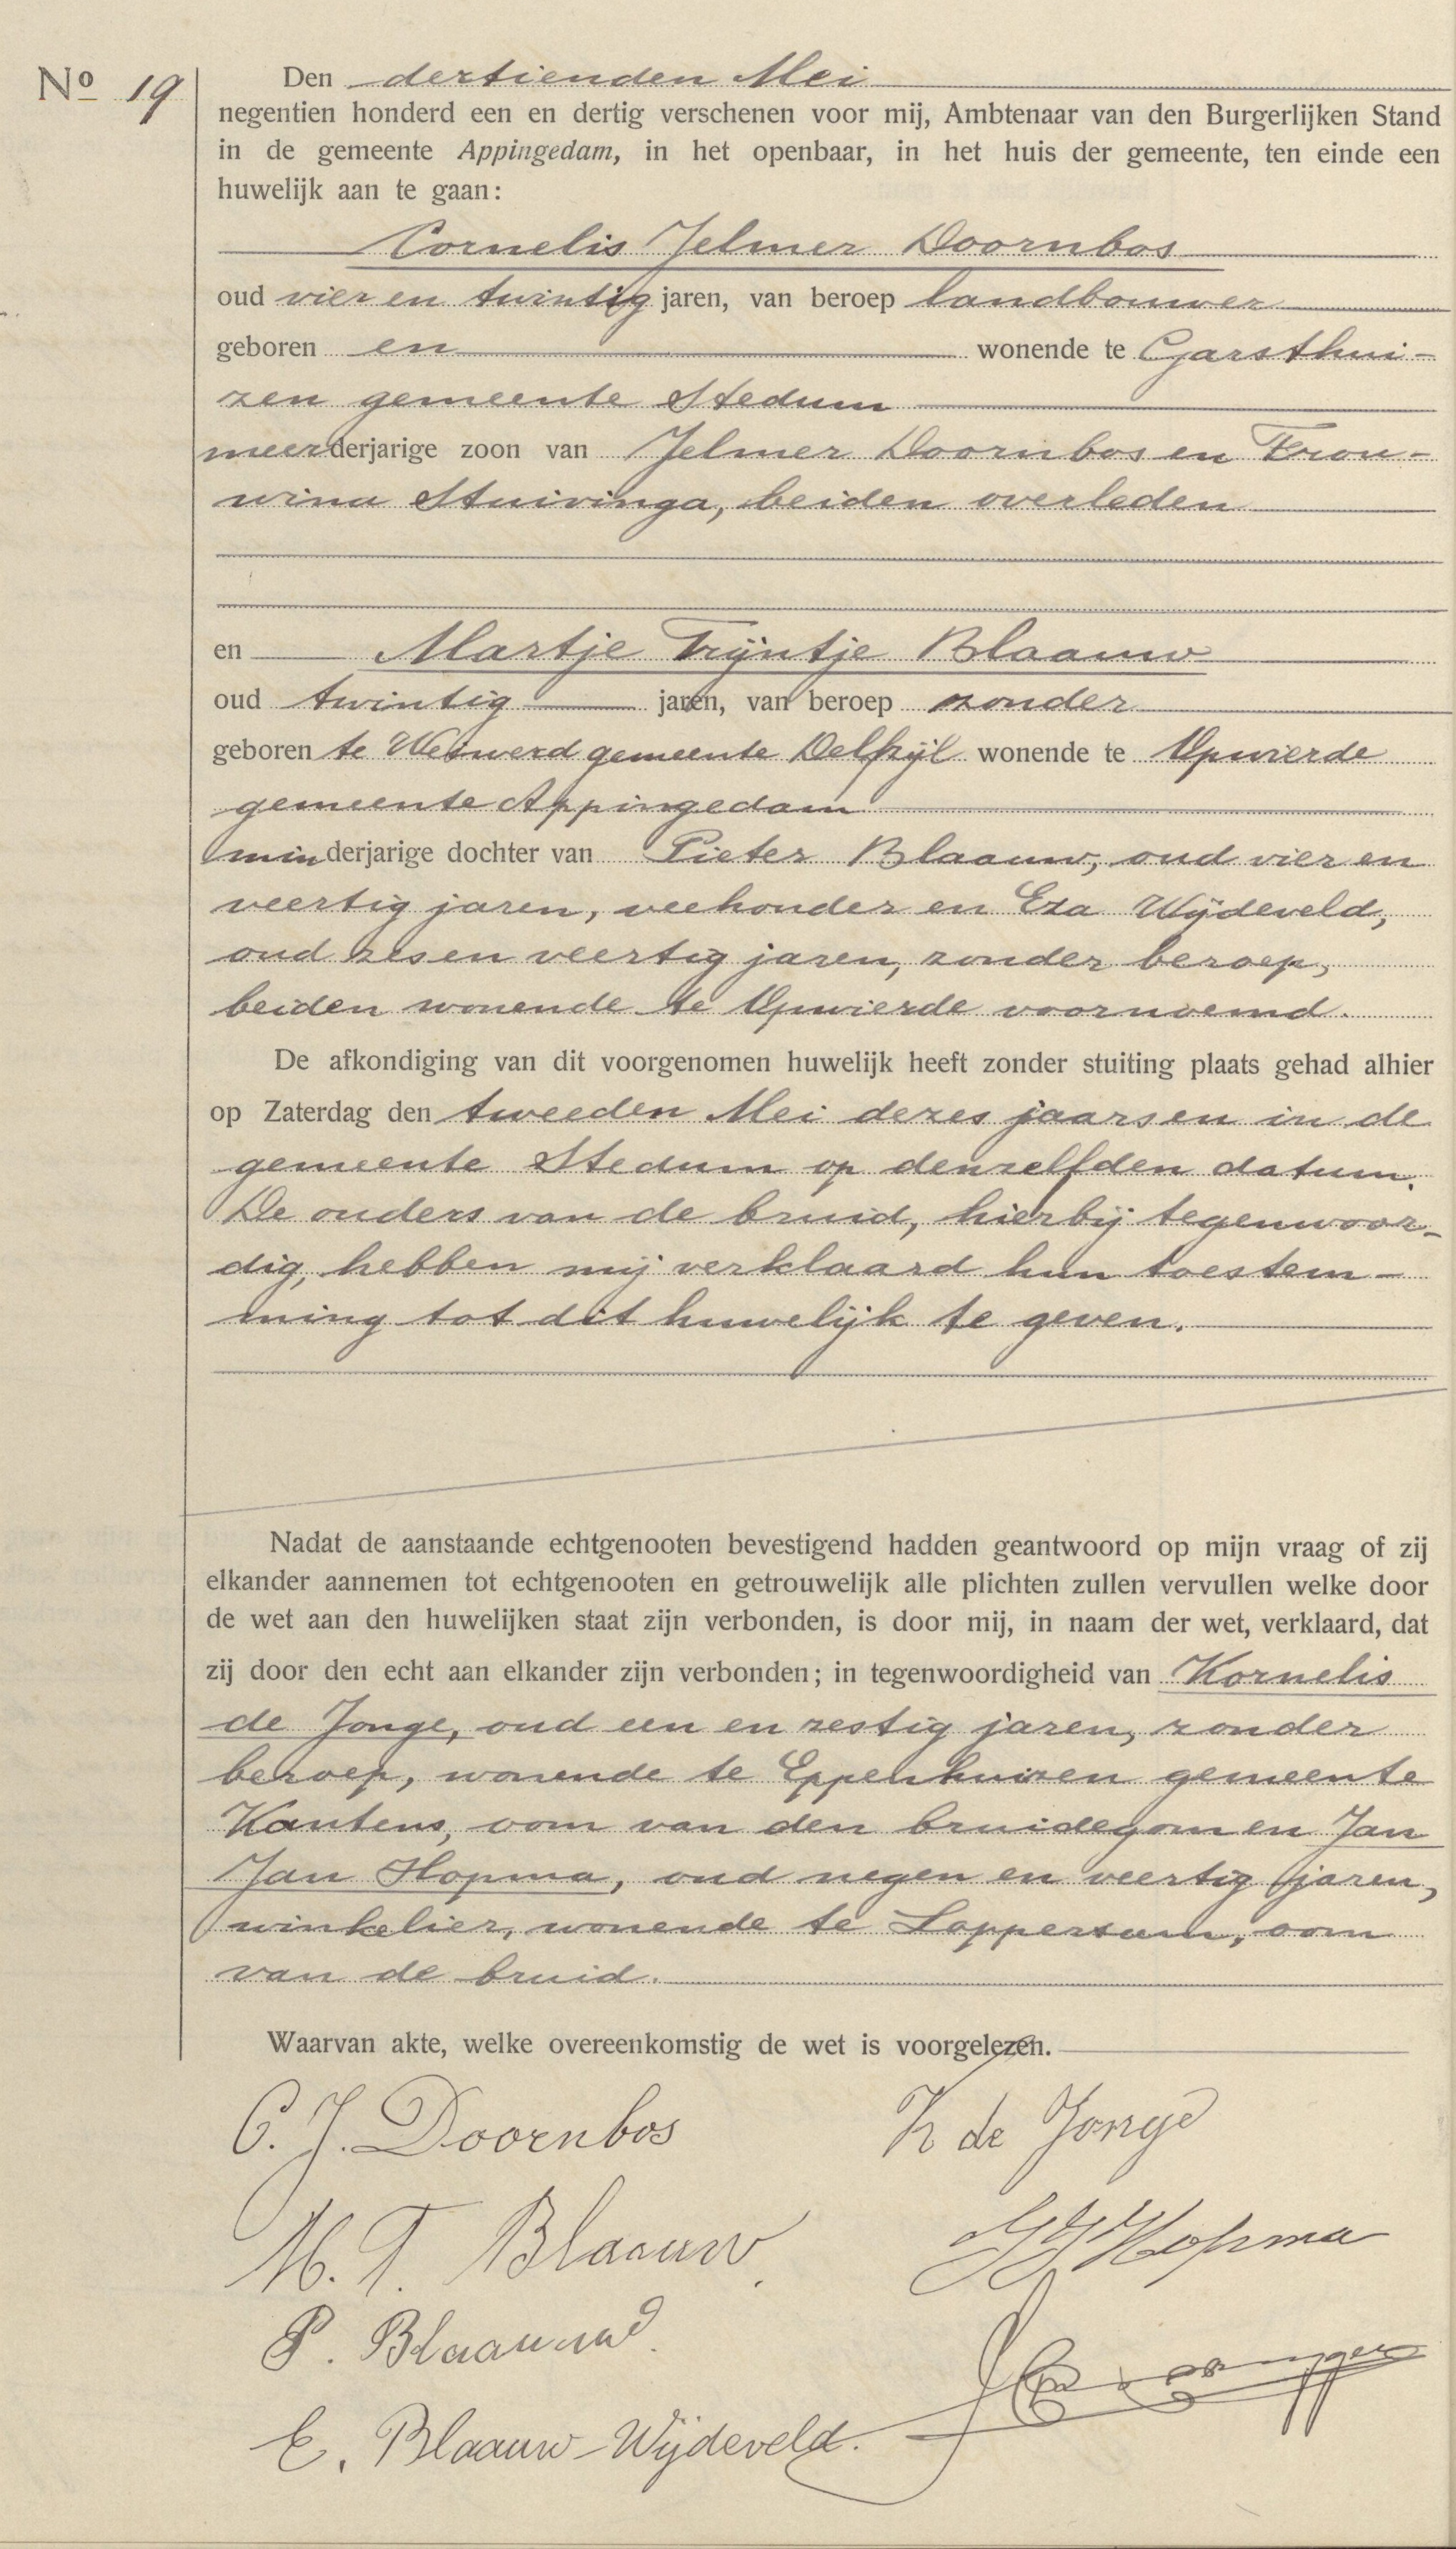 No 19
Den dertienden Mei
negentien honderd een en dertig verschenen voor mij, Ambtenaar van den Burgerlijken Stand
in de gemeente Appingedam, in het openbaar, in het huis der gemeente, ten einde een
huwelijk aan te gaan:
Cornelis Jelmer Doornbos
oud vier en twintig jaren, van beroep landbouwer
geboren en wonende te Garsthui-
zen gemeente Stedum
meerderjarige zoon van Jelmer Doornbos en Frou-
wina Stuivinga, beiden overleden
en Martje Trijntje Blaauw
oud twintig jaren, van beroep zonder
geboren te Weiwerd gemeente Delfzijl wonende te Opwierde
gemeente Appingedam
minderjarige dochter van Pieter Blaauw, oud vier en
veertig jaren, veehouder en Eza Wijdeveld,
oud zes en veertig jaren, zonder beroep,
beiden wonende te Opwierde voornoemd.
De afkondiging van dit voorgenomen huwelijk heeft zonder stuiting plaats gehad alhier
op Zaterdag den tweeden Mei dezes jaars en in de
gemeente Stedum op denzelfden datum.
De ouders van de bruid, hierbij tegenwoor-
dig, hebben mij verklaard hun toestem-
ming tot dit huwelijk te geven.
Nadat de aanstaande echtgenooten bevestigend hadden geantwoord op mijn vraag of zij
elkander aannemen tot echtgenooten en getrouwelijk alle plichten zullen vervullen welke door
de wet aan den huwelijken staat zijn verbonden, is door mij, in naam der wet, verklaard, dat
zij door den echt aan elkander zijn verbonden; in tegenwoordigheid van Kornelis
de Jonge, oud een en zestig jaren, zonder
beroep, wonende te Eppenhuizen gemeente
Kantens, oom van den bruidegom en Jan
Jan Hopma, oud negen en veertig jaren,
winkelier, wonende te Loppersum, oom
van de bruid.
Waarvan akte, welke overeenkomstig de wet is voorgelezen.
C. J. Doornbos
K de Jonge
M. T. Blaauw
JJ Hopma
P. Blaauw
E. Blaauw-Wijdeveld.